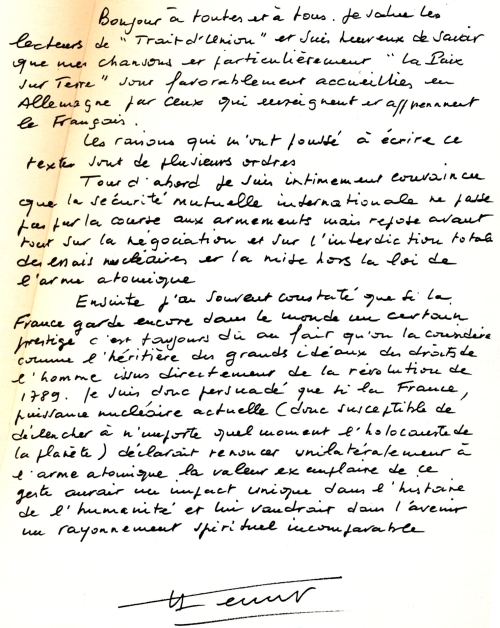 Bonjour à toutes et à tous. Je salue les
lecteurs de "Trait d'Union" et suis heureux de savoir
que mes chansons et particulièrement "la Paix
sur Terre" sont favorablement accueillies en
Allemagne par ceux qui enseignent et apprennent
le Français.
Les raisons qui m'ont poussé à écrire ce
texte sont de plusieurs ordres
Tout d'abord je suis intimement convaincu
que la sécurité mutuelle internationale ne passe
pas par la course aux armements mais repose avant
tout sur la négociation et sur l'interdiction totale
des essais nucléaires et la mise hors la loi de
l'arme atomique
Ensuite j'ai souvent constaté que si la
France garde encore dans le monde un certain
prestige c'est toujours dû au fait qu'on la considère
comme l'héritière des grands idéaux des droits de
l'homme issus directement de la révolution de
1789. Je suis donc persuadé que si la France,
puissance nucléaire actuelle (donc susceptible de
déclencher à n'importe quel moment l'holocauste de
la planète) déclarait renoncer unilatéralement à
l'arme atomique la valeur exemplaire de ce
geste aurait un impact unique dans l'histoire
de l'humanité et lui vaudrait dans l'avenir
un rayonnement spirituel incomparable